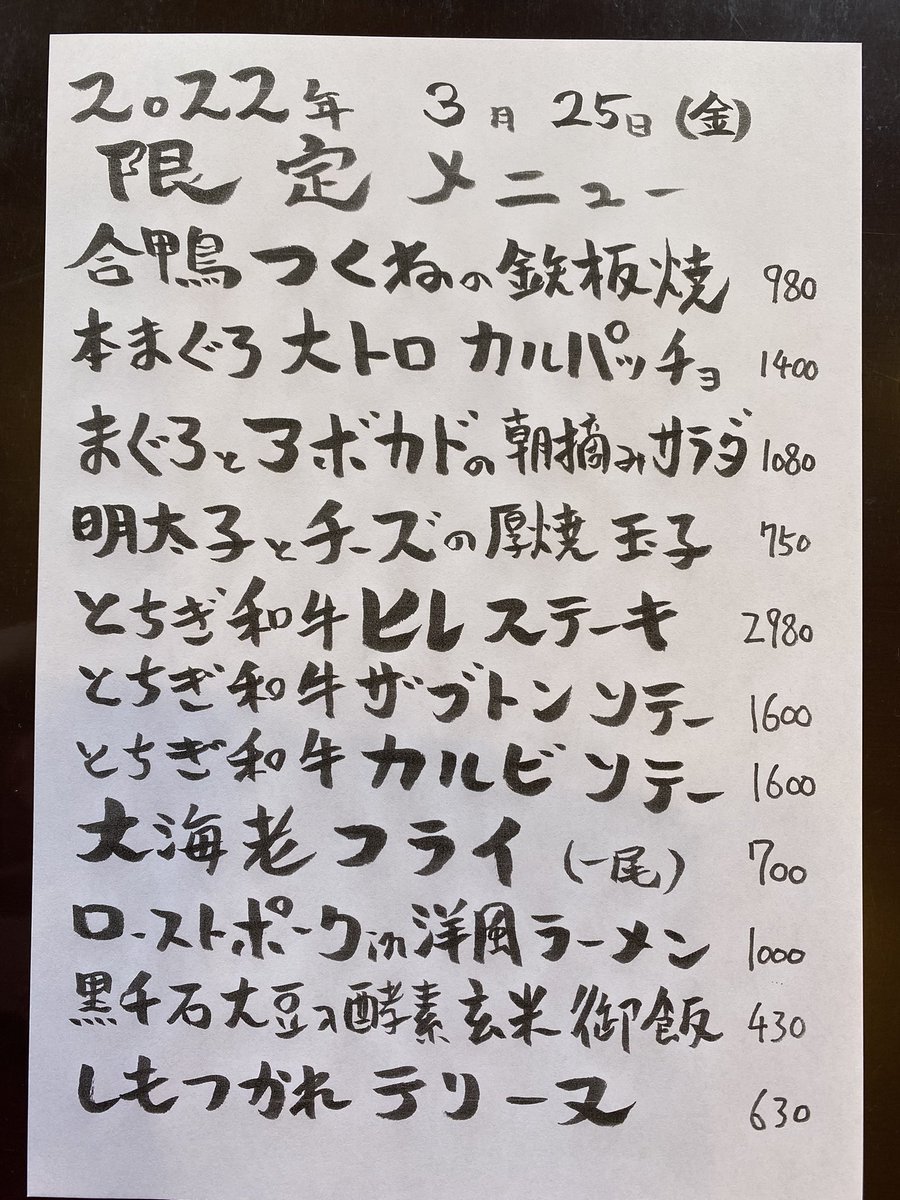 2022年 3月25日(金)
限定メニュー
合鴨つくねの鉄板焼 980
本まぐろ大トロカルパッチョ 1400
まぐろとアボカドの朝摘みサラダ 1080
明太子とチーズの厚焼玉子 750
とちぎ和牛ヒレステーキ 2980
とちぎ和牛ザブトンソテー 1600
とちぎ和牛カルビソテー 1600
大海老フライ(一尾) 700
ローストポークin洋風ラーメン 1000
黒千石大豆の酵素玄米御飯 430
しもつかれテリーヌ 630